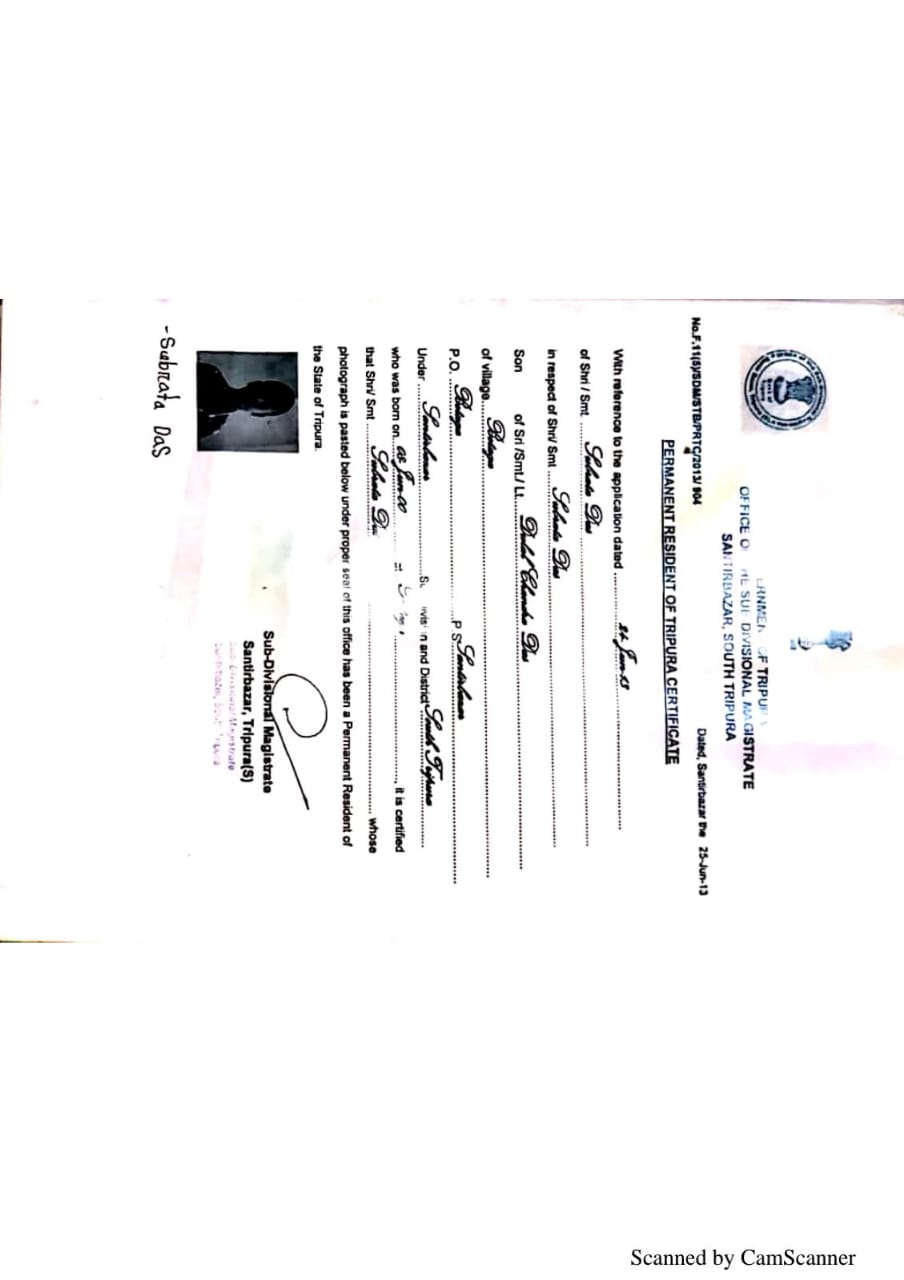 OF TRIPURA
OFFICE OF THE SUB DIVISIONAL MAGISTRATE
SANTIRBAZAR, SOUTH TRIPURA
No.F.11(5)/SDM/STB/PRTC/2013/ 904 Dated, Santirbazar the 25-Jun-13
PERMANENT RESIDENT OF TRIPURA CERTIFICATE
With reference to the application dated
of Shri / Smt. Subrata Das
in respect of Shri/ Smt Subrata Das
Son of Sri /Smt./ Lt. Chandra Das
of village
P.O. P S Santirbazar
Under Santirbazar and District South Tripura
who was born on 08-Jun-00 , it is certified
that Shri/ Smt Subrata Das whose
photograph is pasted below under proper seal of this office has been a Permanent Resident of
the State of Tripura.
Sub-Divisional Magistrate
Santirbazar, Tripura(S)
Sub-Divisional Magistrate
Santirbazar, South Tripura
-Subrata Das
Scanned by CamScanner